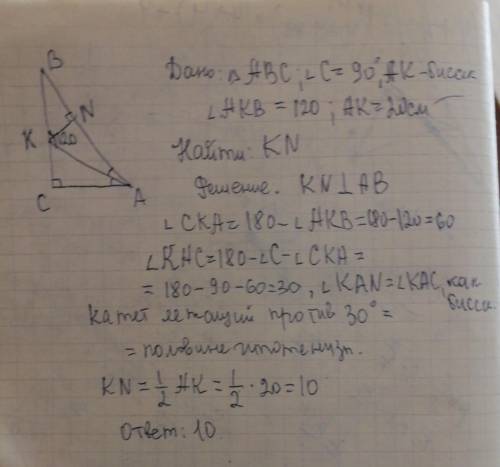 B
N
K
120
C
A
Дано: △ABC; ∠C=90°, AK-бисск
∠AKB=120; AK=20см
Найти: KN
Решение. KN⊥AB
∠CKA=180-∠AKB=180-120=60
∠KAC=180-∠C-∠CKA=
=180-90-60=30, ∠KAN=∠KAC, как
бисск.
катет лежащий против 30°=
=половине гипотенузы.
KN=1/2 AK=1/2·20=10
Ответ: 10